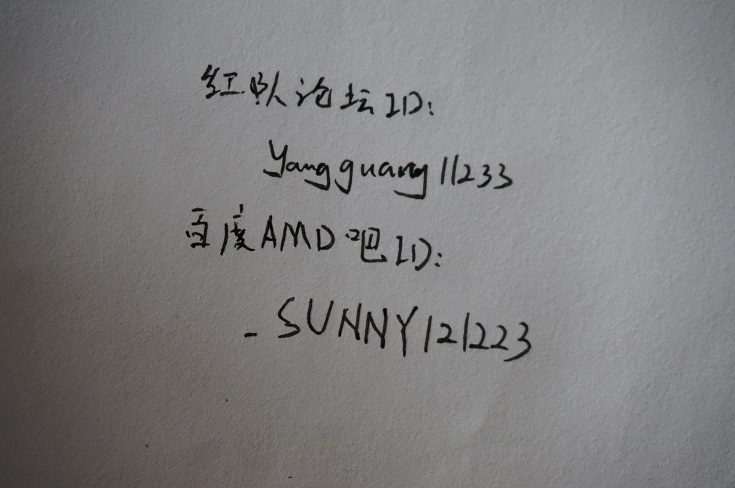 红队论坛ID:
Yangguang11233
百度AMD吧ID:
_SUNNY121223